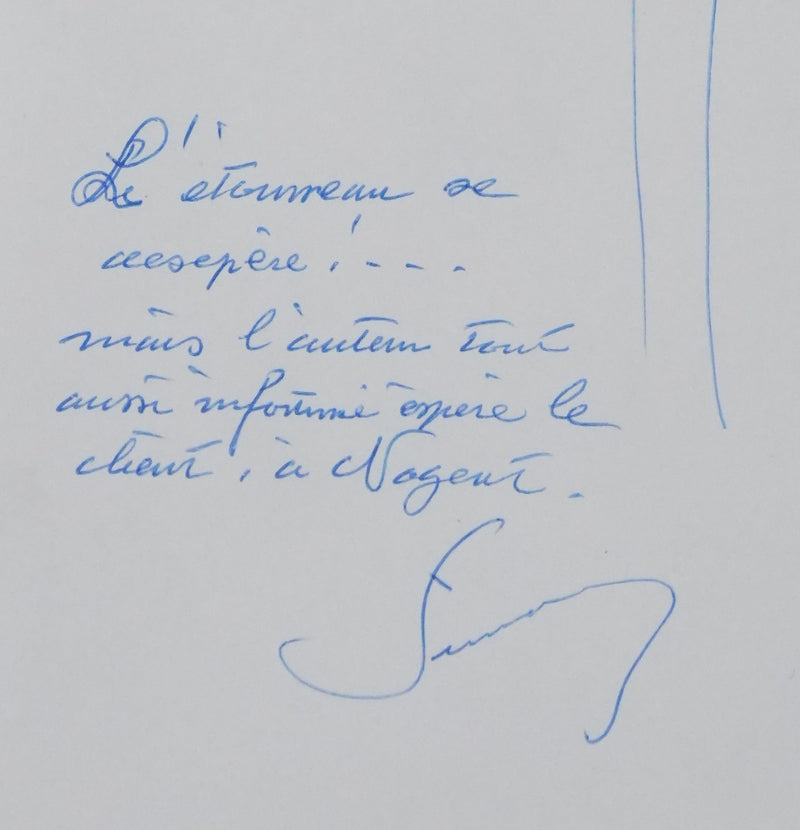 L'étourneau se
désespère ! - - -
mais l'auteur tout
aussi infortuné espère le
client, à Nogent.